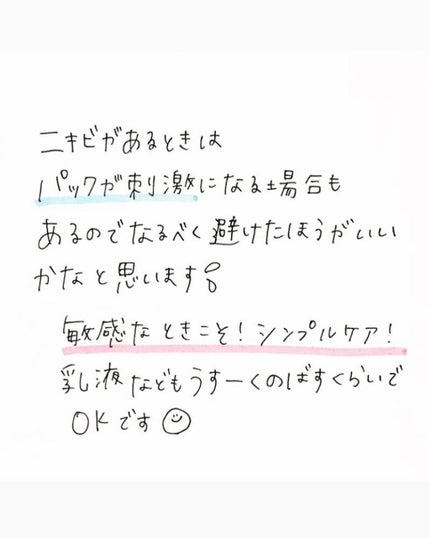 ニキビがあるときは
パックが刺激になる場合も
あるのでなるべく避けたほうがいい
かなと思います
敏感なときこそ！シンプルケア！
乳液などもうすーくのばすくらいで
OKです